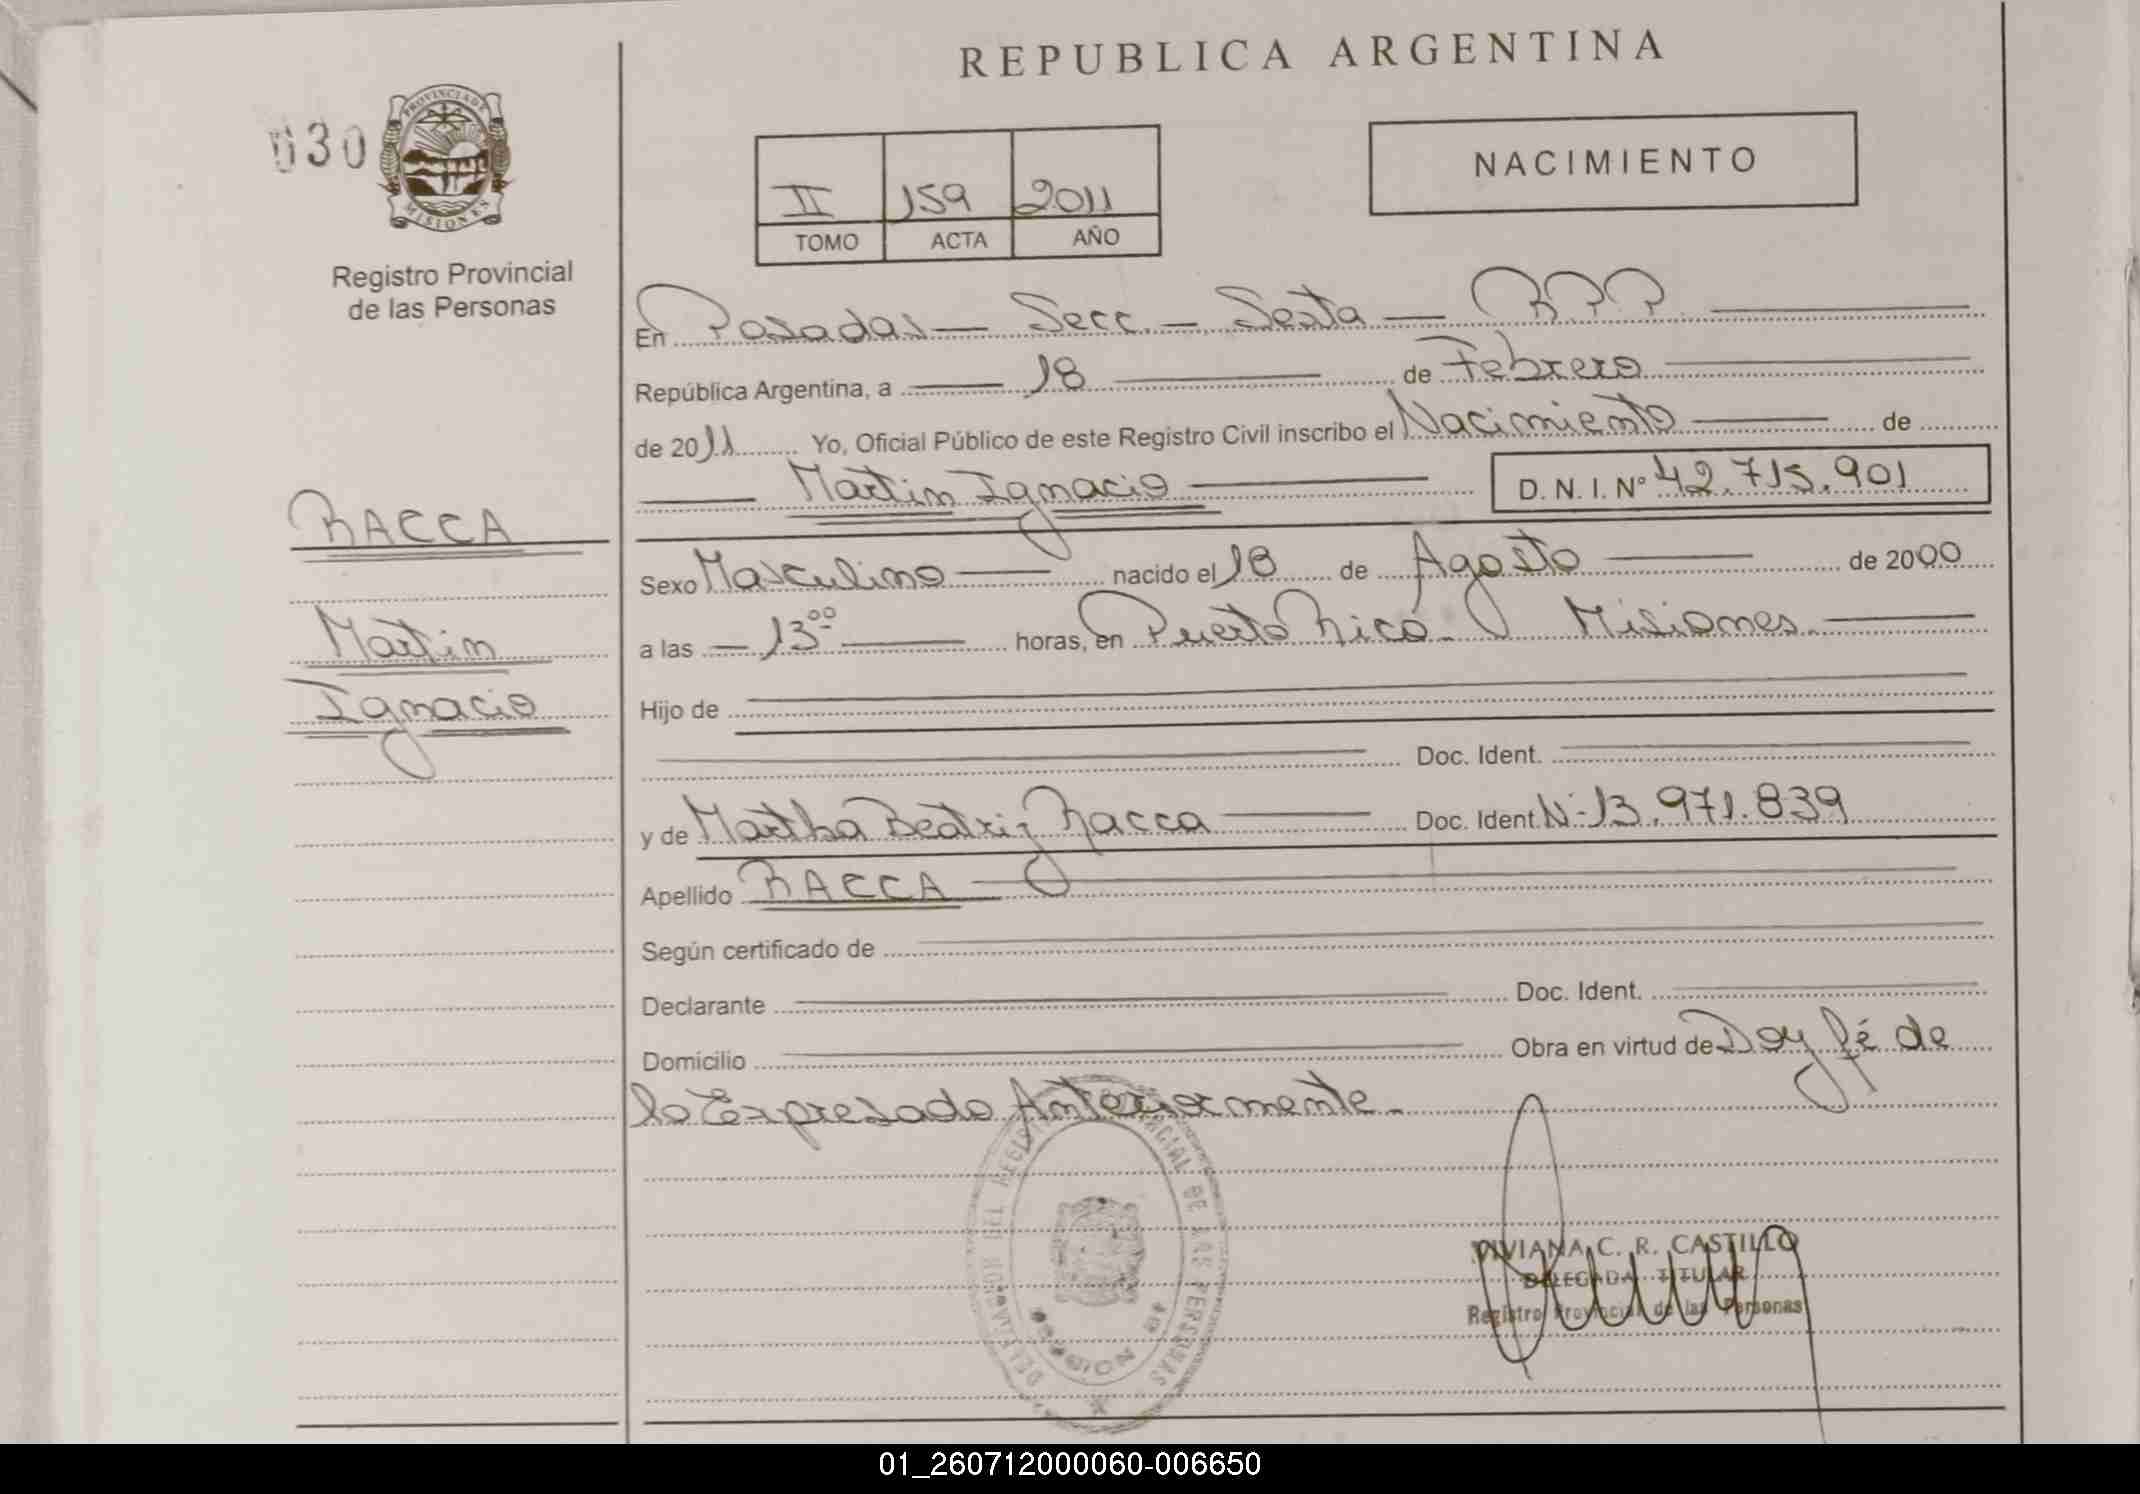 REPUBLICA ARGENTINA
030
PROVINCIA DE
MISIONES
Registro Provincial
de las Personas
II 159 2011
TOMO ACTA AÑO
NACIMIENTO
En Posadas — Secc. — Sexta — R.P.P.
República Argentina, a 18 de Febrero
de 2011 Yo, Oficial Público de este Registro Civil inscribo el Nacimiento de
Martin Ignacio D. N. I. Nº 42.715.901
RACCA
Martin
Ignacio
Sexo Masculino nacido el 18 de Agosto de 2000
a las 13⁰⁰ horas, en Puerto Rico - Misiones
Hijo de
Doc. Ident.
y de Martha Beatriz Racca Doc. Ident. Nº 13.971.839
Apellido RACCA
Según certificado de
Declarante Doc. Ident.
Domicilio Obra en virtud de Doy fé de
lo Expresado Anteriormente.
VIVIANA C. R. CASTILLO
DELEGADA TITULAR
Registro Provincial de las Personas
01_260712000060-006650